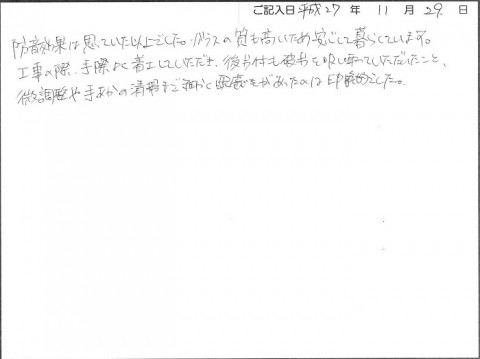 ご記入日 平成27 年 11 月 29 日
防音効果は思っていた以上でした。ガラスの質も高いため安心して暮らしています。
工事の際、手際よく着工していただき、後片付も を吸い取っていただいたこと、
微調整や手あかの清掃まで細かく配慮があったのは印象的でした。